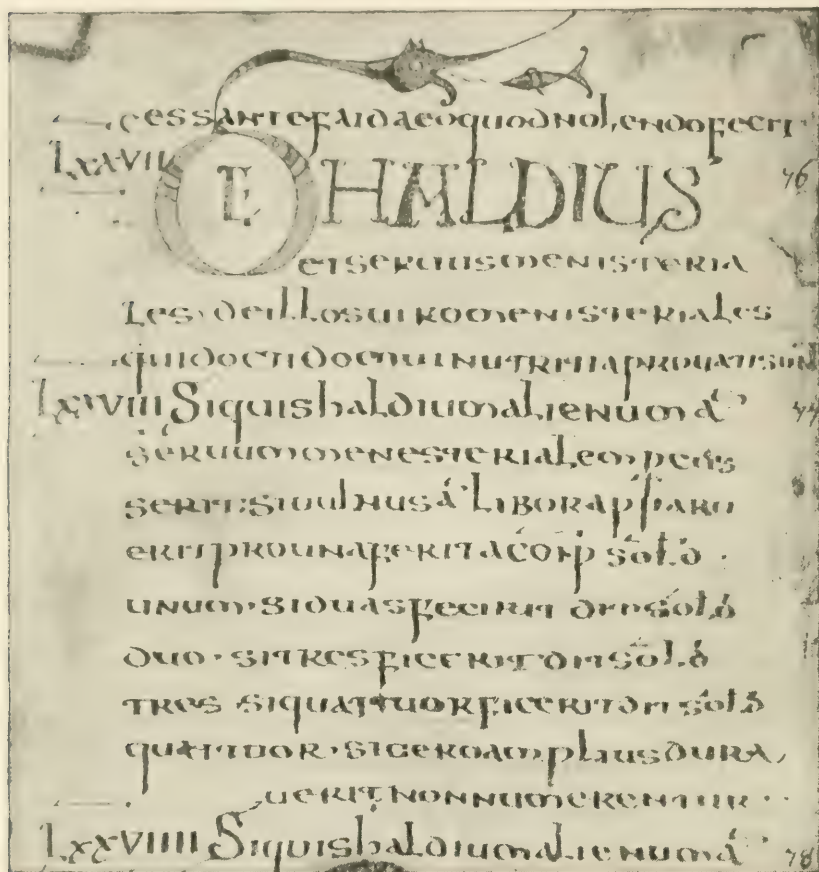 cessante faida eo quod nolendo fecit
LXXVII DE HALDIUS 76
et seruus menisteria
les · de illos uiro menisteriales
qui docti domui nutriti aprouati sūn
LXXVIII Si quis haldium alienum a̓ 77
seruum menesterialem percus
serit: si uulnus a̓ libor apparu
erit pro una ferita comp̄ sol̄d ·
unum · si duas fecirit det sol̄d
duo · si tres ficerit det sol̄d
tres si quattuor ficerit det sol̄d
quattuor · si uero amplius dura
uerit non numerentur · ·
LXXVIIII Si quis haldium alienum a̓ 78